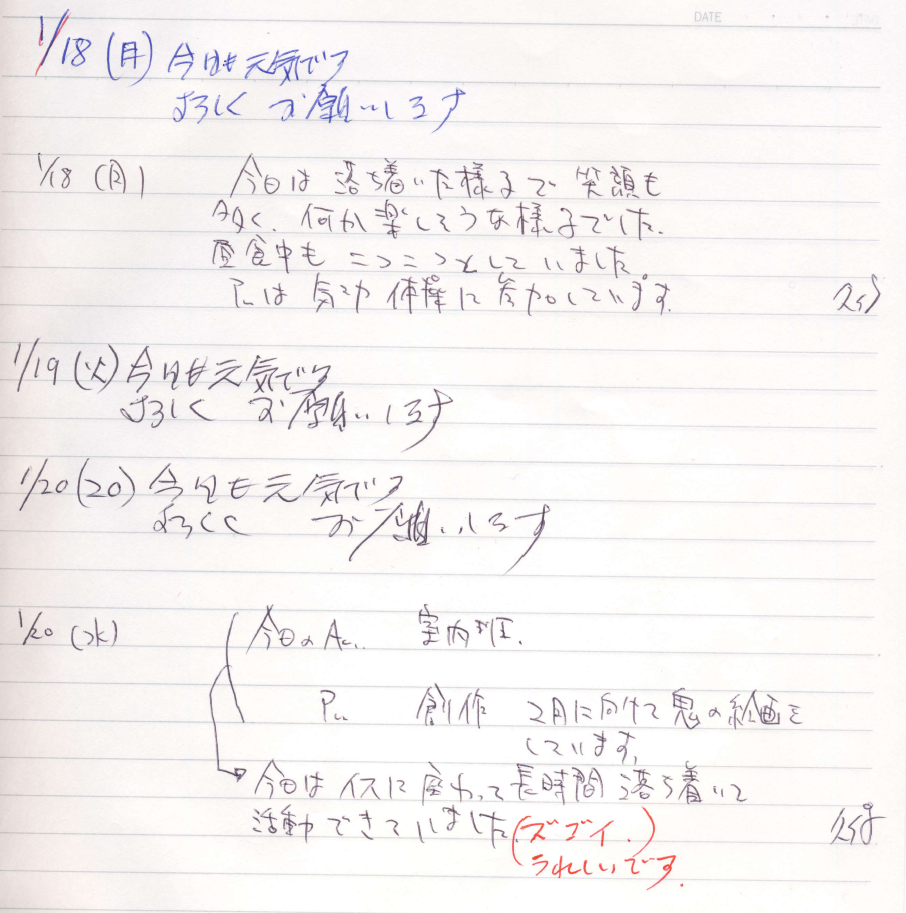 DATE
1/18(月) 今日も元気です
よろしく お願いします
1/18(月) 今日は落ち着いた様子で 笑顔も
多く、何か楽しそうな様子でした。
昼食中もニコニコとしていました。
P.は気功体操に参加しています。
1/19(火) 今日も元気です
よろしく お願いします
1/20(20) 今日も元気です
よろしく お願いします
1/20(水) 今日のA.. 室内班.
P.. 創作 2月に向けて鬼の絵画を
しています。
今日はイスに座わって長時間落ち着いて
活動できていました。(ズゴイ.)
うれしいです.